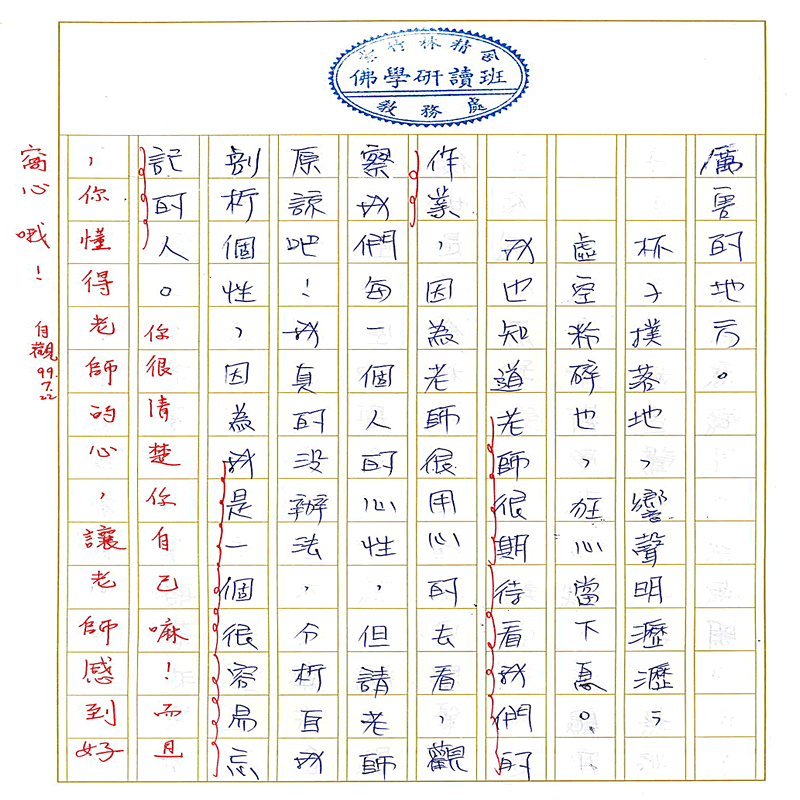 紫竹林精舍
佛學研讀班
教務處
厲害的地方。
杯子撲落地,響聲明瀝瀝,
虛空粉碎也,狂心當下息。
我也知道老師很期待看我們的
作業,因為老師很用心的去看,觀
察我們,每一個人的心性,但請老師
原諒吧!我真的沒辦法,分析自我
剖析個性,因為我是一個很容易忘
記的人。你很清楚你自己嘛!而且
,你懂得老師的心,讓老師感到好
窩心哦!
自觀
99.7.22